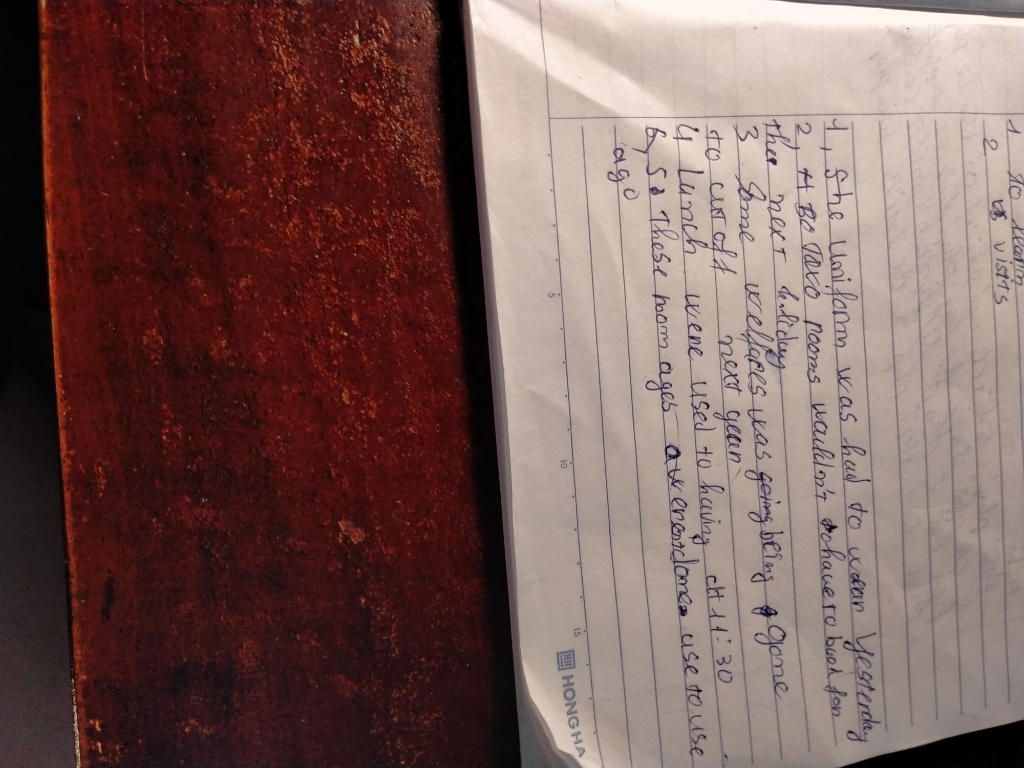 1 to learn
2 visits
1, She uniform was had to wear yesterday
2, Two rooms wouldn't to have to book for
the next holiday
3 Some welfares was going being gone
to cut off next year
4 Lunch were used to having at 11:30
5 These mom ages use to use
ago
HONG HA
5
10
15